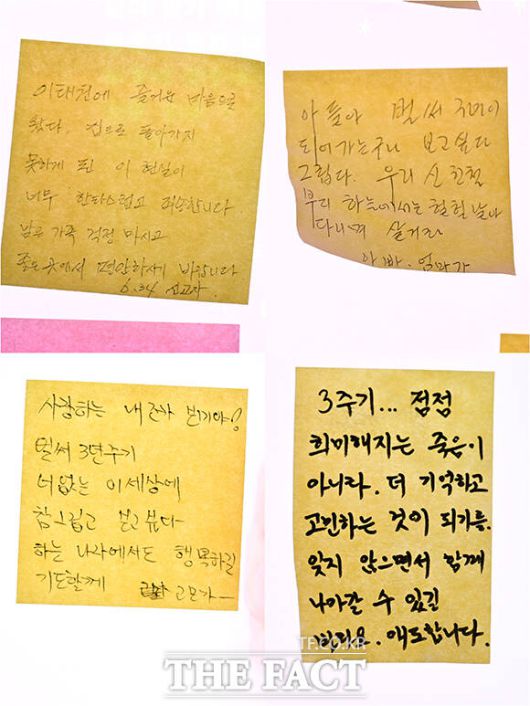 이태원에 즐거운 마음으로
왔다. 집으로 돌아가지
못하게 된 이 현실이
너무 한탄스럽고 죄송합니다.
남은 가족 걱정 마시고
좋은 곳에서 평안하시기 바랍니다
6.34 신고자.
아들아 벌써 3년이
되어가는구나 보고싶다
그립다. 우리
부디 하늘에서는 훨훨 날아
다니며 살거라
아빠. 엄마가
사랑하는 내 조카
벌써 3년주기
너없는 이세상에
참 그립고 보고싶다
하늘 나라에서도 행복하길
기도할게 고모가
3주기... 점점
희미해지는 죽음이
아니라. 더 기억하고
고민하는 것이 되기를.
잊지 않으면서 함께
나아갈 수 있길
바라요. 애도합니다.
TF.CO.KR
THE FACT